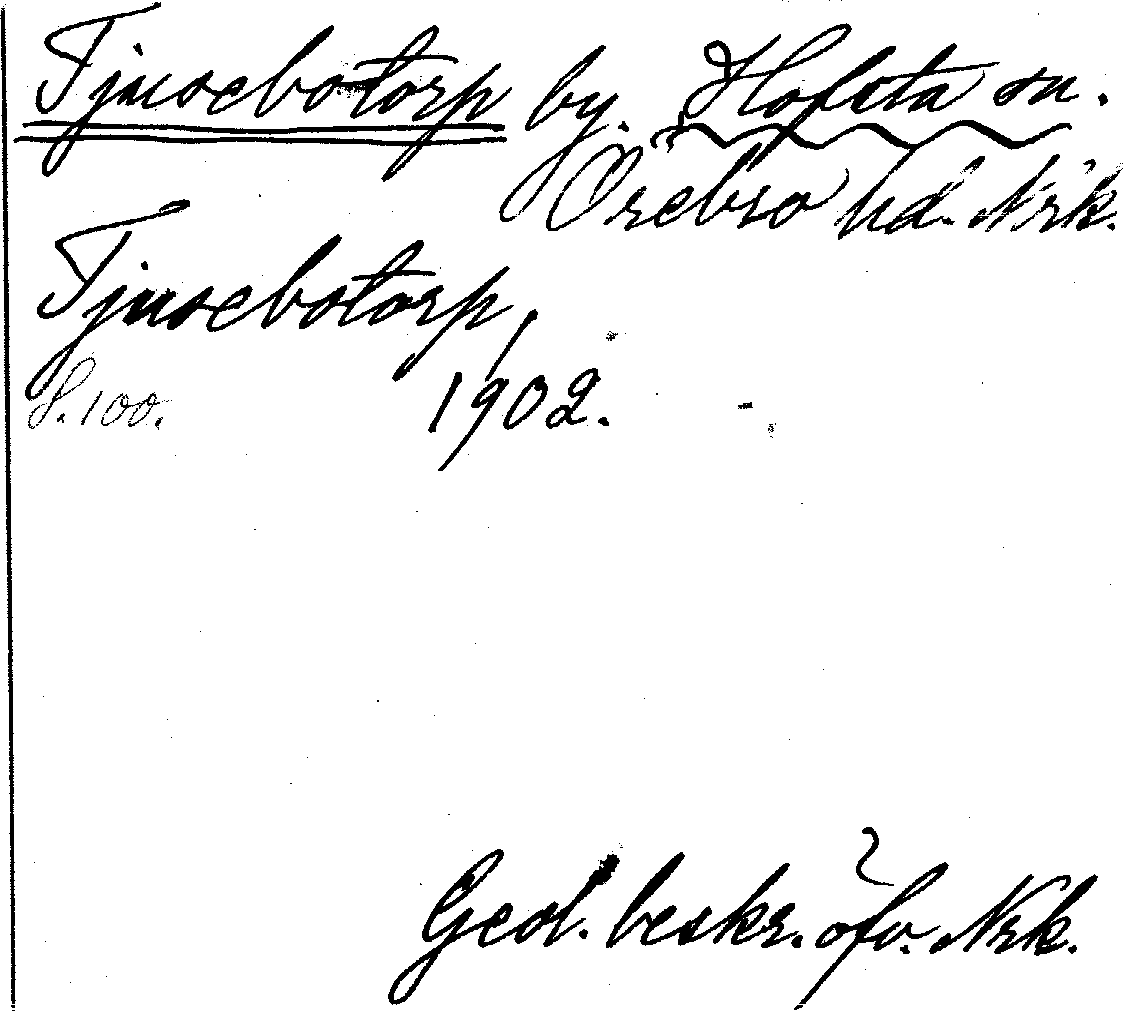 Tjusebotorp by. Hofsta sn.
Örebro hd. Nrk.
Tjusebotorp,
S. 100. 1902.
Geol. beskr. öfv. Nrk.